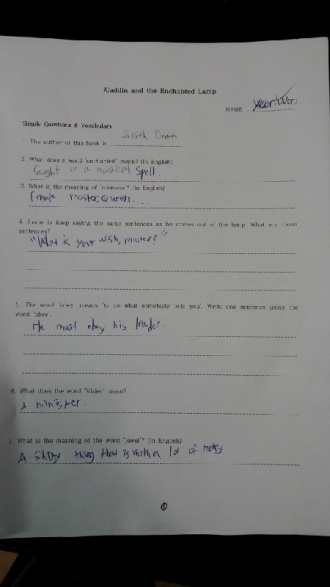 Aladdin and the Enchanted Lamp
NAME
Simple Questions & Vocabulary
1. The author of this book is Judith Dean
2. What does a word 'enchanted' mean? (In English)
Caught in a magical spell.
3. What is the meaning of 'mistress'? (In English)
Female master, Queen.
4. Genie is keep saying the same sentences as he comes out of the lamp. What are those
sentences?
"What is your wish, master?"
5. The word 'obey' means 'to do what somebody tells you'. Write one sentence using the
word 'obey'.
He must obey his leader.
6. What does the word 'Vizier' mean?
A minister.
7. What is the meaning of the word 'jewel'? (In English)
A shiny thing that is worth a lot of money
1